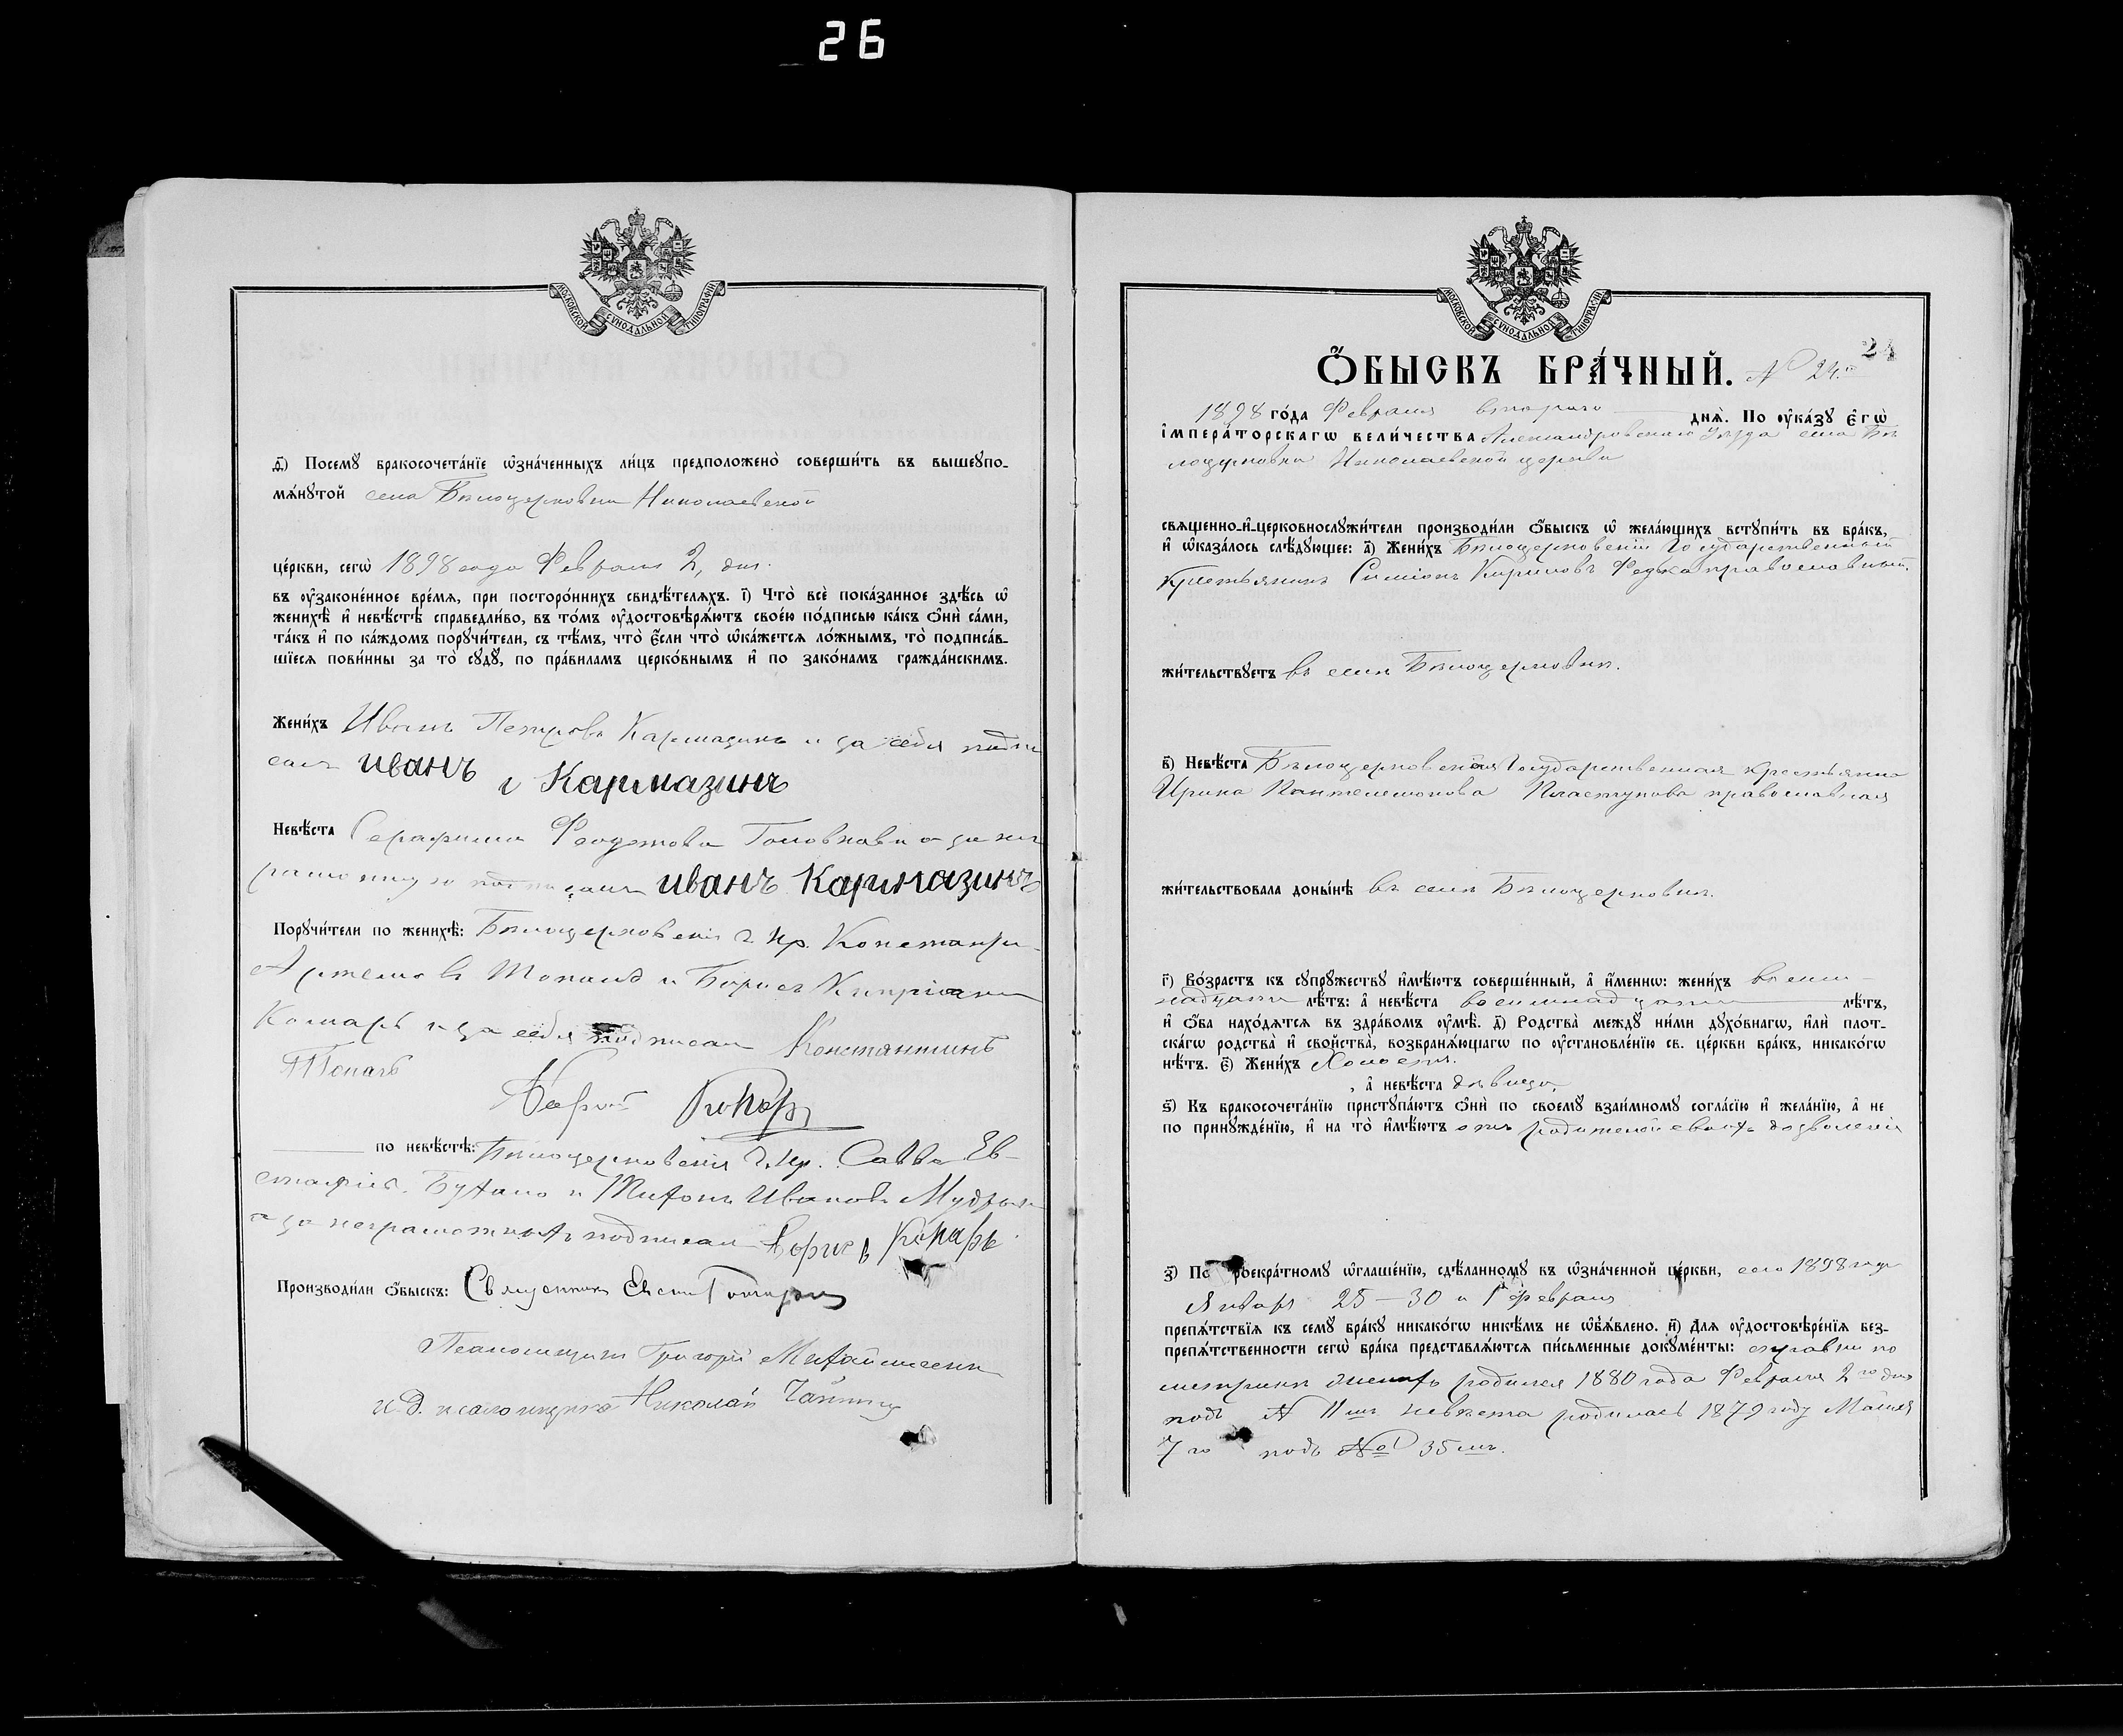 26
МОСКОВСКОЙ СѴНОДАЛЬНОЙ ТИПОГРАФІИ
д҃) Посемꙋ бракосочета́нїе ѡ҆зна́ченныхъ ли́цъ предположено̀ соверши́ть въ вышеꙋпо-
мѧ́нꙋтой села Бѣлоцерковки Николаевской
це́ркви, сегѡ̀ 1898 года Февраля 2, дня.
въ ᲂу҆зако́ненное вре́мѧ, при посторо́ннихъ свидѣ́телѧхъ. і҃) Что̀ всѐ пока́занное здѣ́сь ѡ҆
женихѣ̀ и҆ невѣ́стѣ справедли́во, въ то́мъ ᲂу҆достовѣрѧ́ютъ свое́ю по́дписью ка́къ ѻ҆нѝ са́ми,
та́къ и҆ по ка́ждомъ порꙋчи́тели, съ тѣ́мъ, что̀ є҆́сли что̀ ѡ҆ка́жетсѧ ло́жнымъ, то̀ подписа́в-
шїесѧ пови́нны за то̀ сꙋдꙋ̀, по пра́виламъ церко́внымъ и҆ по зако́намъ гражда́нскимъ.
Жени́хъ Иванъ Петровъ Кармазинъ и за себя подпи
салъ иванъ
Кармазинъ
Невѣ́ста Серафима Головкова а за не
грамотную подписалъ иванъ Кармазинъ
Порꙋчи́тели по женихѣ̀: Бѣлоцерковскіи г. кр. Константинъ
Артемовъ и Борисъ Кипріановъ
и за себя подписали Константинъ
по невѣ́стѣ: Бѣлоцерковскія г. кр. Савва Ев-
стафіевъ и Тихонъ Ивановъ Мудрый
а за неграмотныхъ подписалъ Борисъ
Производи́ли ѻ҆́быскъ: Священникъ
Псаломщикъ Григорій Михайличенко
и. д. псаломщика Николай
МОСКОВСКОЙ СѴНОДАЛЬНОЙ ТИПОГРАФІИ
24
Ѻ҆́БЫСКЪ БРА́ЧНЫЙ. № 24.
1898 го́да Февраля втораго днѧ̀. По ᲂу҆ка́зꙋ є҆гѡ̀
і҆мпера́торскагѡ вели́чества Александровскаго уѣзда села Бѣ
лоцерковки Николаевской церкви
свѧщенно-и҆-церковнослꙋжи́тели производи́ли ѻ҆́быскъ ѡ҆ жела́ющихъ встꙋпи́ть въ бра́къ,
и҆ ѡ҆каза́лось слѣ́дꙋющее: а҃) Жени́хъ Бѣлоцерковскій Государственный
крестьянинъ Симіонъ Кириловъ Федька православный.
жи́тельствꙋетъ въ селѣ Бѣлоцерковкѣ.
в҃) Невѣ́ста Бѣлоцерковская Государственная крестьянка
Ирина Пантелемонова Пластунова православная
жи́тельствовала доны́нѣ въ селѣ Бѣлоцерковкѣ.
г҃) Во́зрастъ къ сꙋпрꙋ́жествꙋ и҆мѣ́ютъ соверше́нный, а҆ и҆́меннѡ: жени́хъ восем-
надцати лѣ́тъ: а҆ невѣ́ста восемнадцати лѣ́тъ,
и҆ ѻ҆́ба нахо́дѧтсѧ въ здра́вомъ ᲂу҆мѣ̀. д҃) Родства̀ междꙋ̀ ни́ми дꙋхо́внагѡ, и҆лѝ плот-
ска́гѡ родства̀ и҆ сво́йства̀, возбранѧ́ющагѡ по ᲂу҆становле́нїю св. це́ркви бра́къ, никако́гѡ
нѣ́тъ. є҃) Жени́хъ Холостъ.
, а҆ невѣ́ста дѣвица,
ѕ҃) Къ бракосочета́нїю пристꙋпа́ютъ ѻ҆нѝ по своемꙋ̀ взаи́мномꙋ согла́сїю и҆ жела́нїю, а҆ не
по принꙋжде́нїю, и҆ на то̀ и҆мѣ́ютъ отъ родителей своихъ дозволенія
з҃) По троекра́тномꙋ ѡ҆глаше́нїю, сдѣ́ланномꙋ въ ѡ҆зна́ченной це́ркви, сего 1898 года
Января 25 — 30 и 1 Февраля
препѧ́тствїѧ къ семꙋ̀ бра́кꙋ никако́гѡ никѣ́мъ не ѡ҆б̾ѧ́влено. и҃) Длѧ ᲂу҆достовѣре́нїѧ без-
препѧ́тственности сегѡ̀ бра́ка представлѧ́ютсѧ пи́сьменные докꙋме́нты: справки по
метрикѣ женихъ родился 1880 года Февраля 2го дня
подъ № 11мъ невѣста родилась 1879 году Маия
7го подъ № 35мъ.